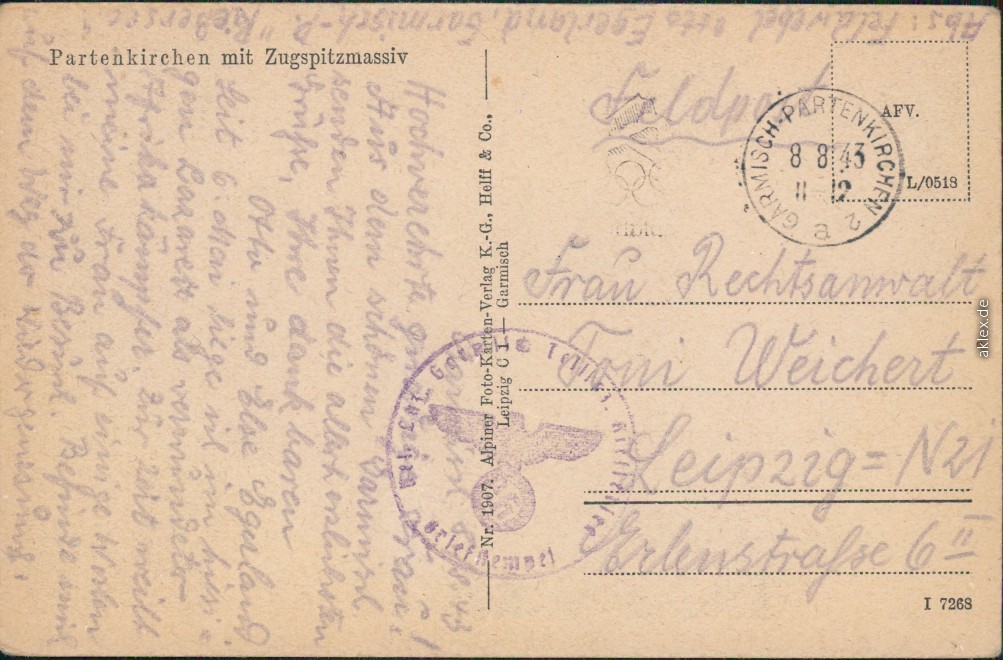 Abs: Feldwebel Otto Egerland, Garmisch-P. "Riessersee"
Partenkirchen mit Zugspitzmassiv
Feldpost
AFV.
L/0518
GARMISCH-PARTENKIRCHEN 2
8 8 43
11-12
e
Frau Rechtsanwalt
Toni Weichert
Leipzig = N21
Erlenstraße 6 II
I 7268
Nr. 1907. Alpiner Foto-Karten-Verlag K.-G., Helff & Co.,
Leipzig C 1 — Garmisch
Briefstempel
Hochverehrte gnädige Frau!
Aus den schönen Garmisch
senden Ihnen die allerherzlichsten
Grüße, Ihre dankbaren
Otto und Else Egerland
Seit 6 Wochen liege ich im hiesi-
gen Lazarett als verwundeter
Afrikakämpfer. Zur Zeit weilt
meine Frau auf einige Wochen
bei mir zu Besuch. Befinde mich
auf dem Weg der